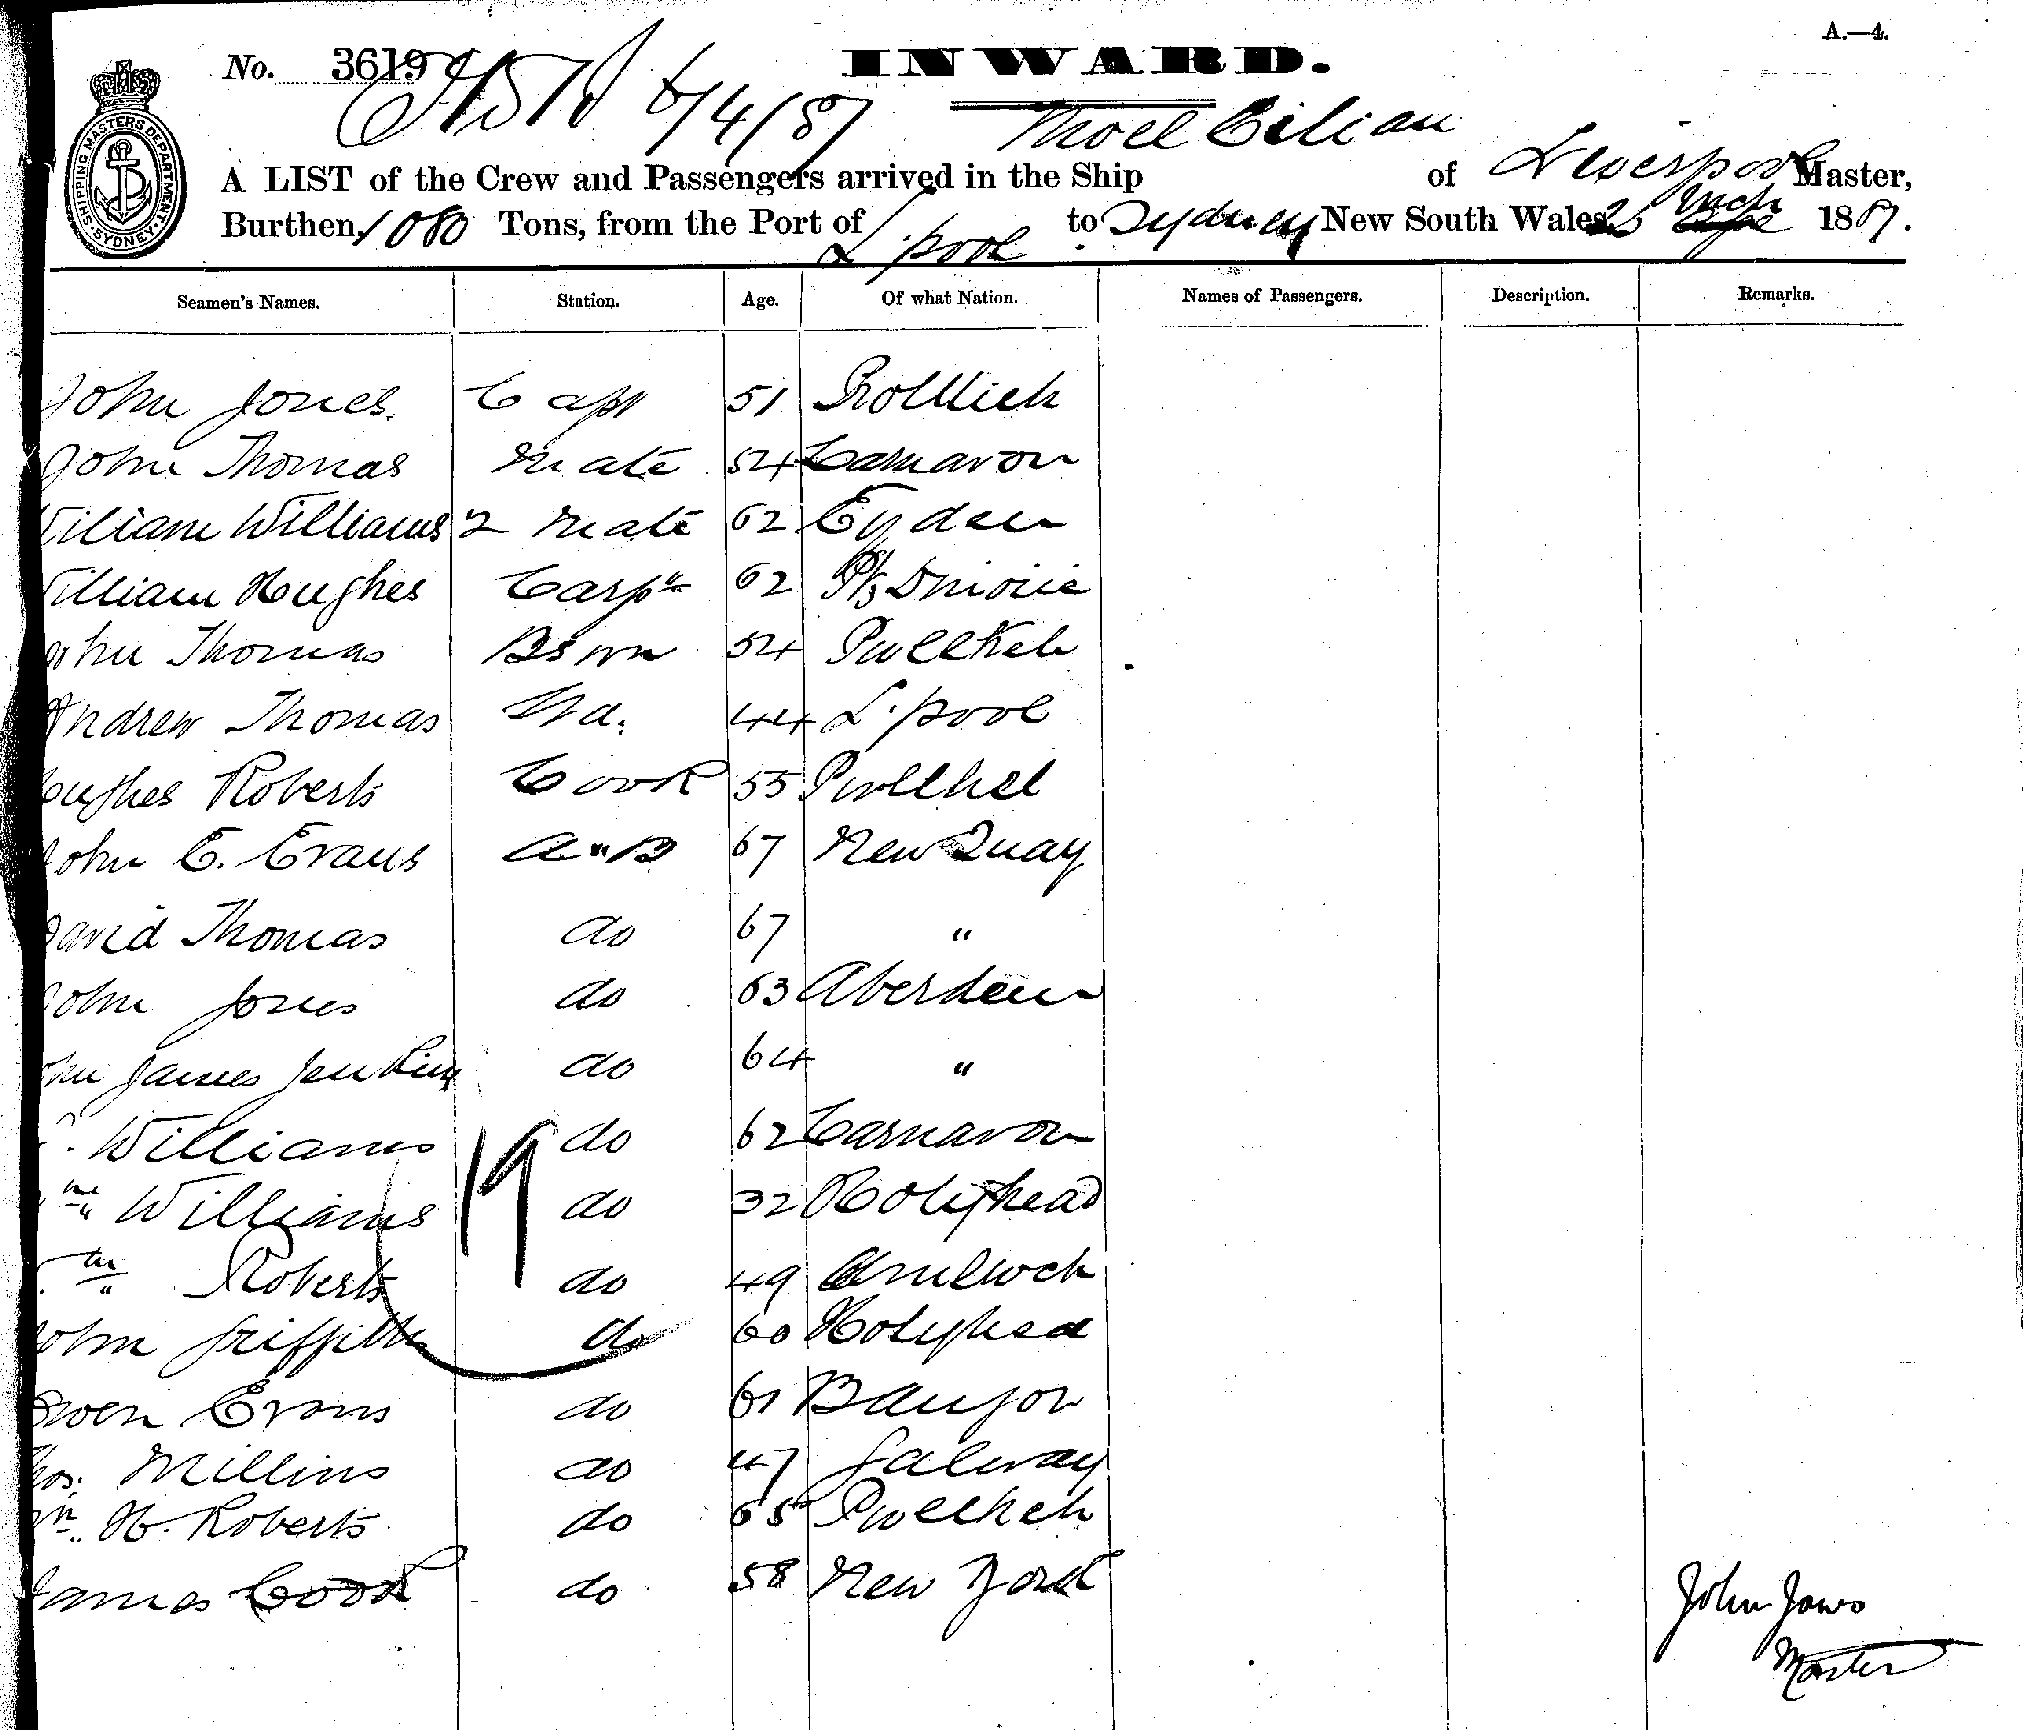 A.—4.
No. 3619
INWARD.
6/4/87
Moel Eilian
A LIST of the Crew and Passengers arrived in the Ship of Liverpool Master,
Burthen, 1080 Tons, from the Port of L'pool to Sydney New South Wales 25 Mch 1887.
SHIPPING MASTERS DEPARTMENT SYDNEY
Seamen's Names. Station. Age. Of what Nation. Names of Passengers. Description. Remarks.
John Jones. Capt 51
John Thomas Mate 54 Carnarvon
William Williams 2 Mate 62
William Hughes Carpr 62
John Thomas Bswn 54 Pwllheli
Andrew Thomas 44 L'pool
Hughes Roberts Cook 55 Pwllhel
John E. Evans A"B 67 New Quay
David Thomas do 67 "
John Jones do 63 Aberdeen
John James Jenkins do 64 "
Williams do 62 Carnarvon
Wm Williams do 32 Holyhead
Roberts do 49 Amlwch
John Griffith do 60 Holyhead
Owen Evans do 61 Bangor
Thos. Millins do 47 Galway
Wm H. Roberts do 65 Pwllheli
James Cook do 58 New York
19
John Jones
Master